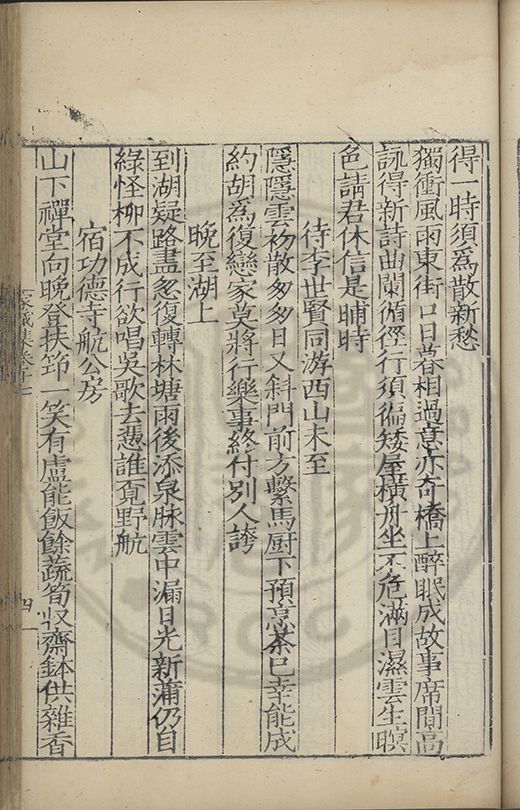 得一時須爲散新愁
獨衝風雨東街口日暮相過意亦奇橋上醉眠成故事席間高
詠得新詩曲闌循徑行須徧矮屋橫舟坐不危滿目濕雲生暝
色請君休信是晡時
待李世賢同游西山未至
隱隱雲初散匆匆日又斜門前方繫馬厨下預烹茶已幸能成
約胡爲復戀家莫將行樂事終付別人誇
晩至湖上
到湖疑路盡忽復轉林塘雨後添泉脉雲中漏日光新蒲仍自
綠怪柳不成行欲唱吳歌去憑誰覔野航
宿功德寺航公房
山下禪堂向晚登扶笻一笑有盧能飯餘蔬筍収齋鉢供雜香
家藏集卷十
四